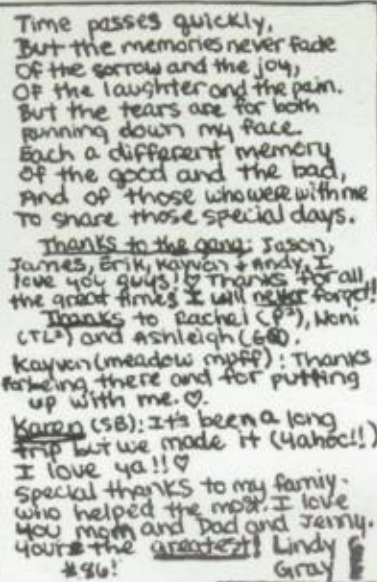 Time passes quickly,
But the memories never fade
Of the sorrow and the joy,
Of the laughter and the pain.
But the tears are for both
Running down my face.
Each a different memory
Of the good and the bad,
And of those who were with me
To share those special days.
Thanks to the gang: Jason,
James, Erik, Kayvan & Andy, I
love you guys! ♡ Thanks for all
the great times I will never forget!
Thanks to Rachel (P³), Noni
(TL²) and Ashleigh
Kayvan (meadow muff): Thanks
for being there and for putting
up with me. ♡.
Karen (SB): It's been a long
trip but we made it (Yahoo!!)
I love ya!! ♡
Special thanks to my famiy.
who helped the most. I love
you mom and Dad and Jenny.
your the greatest! Lindy
#86! Gray